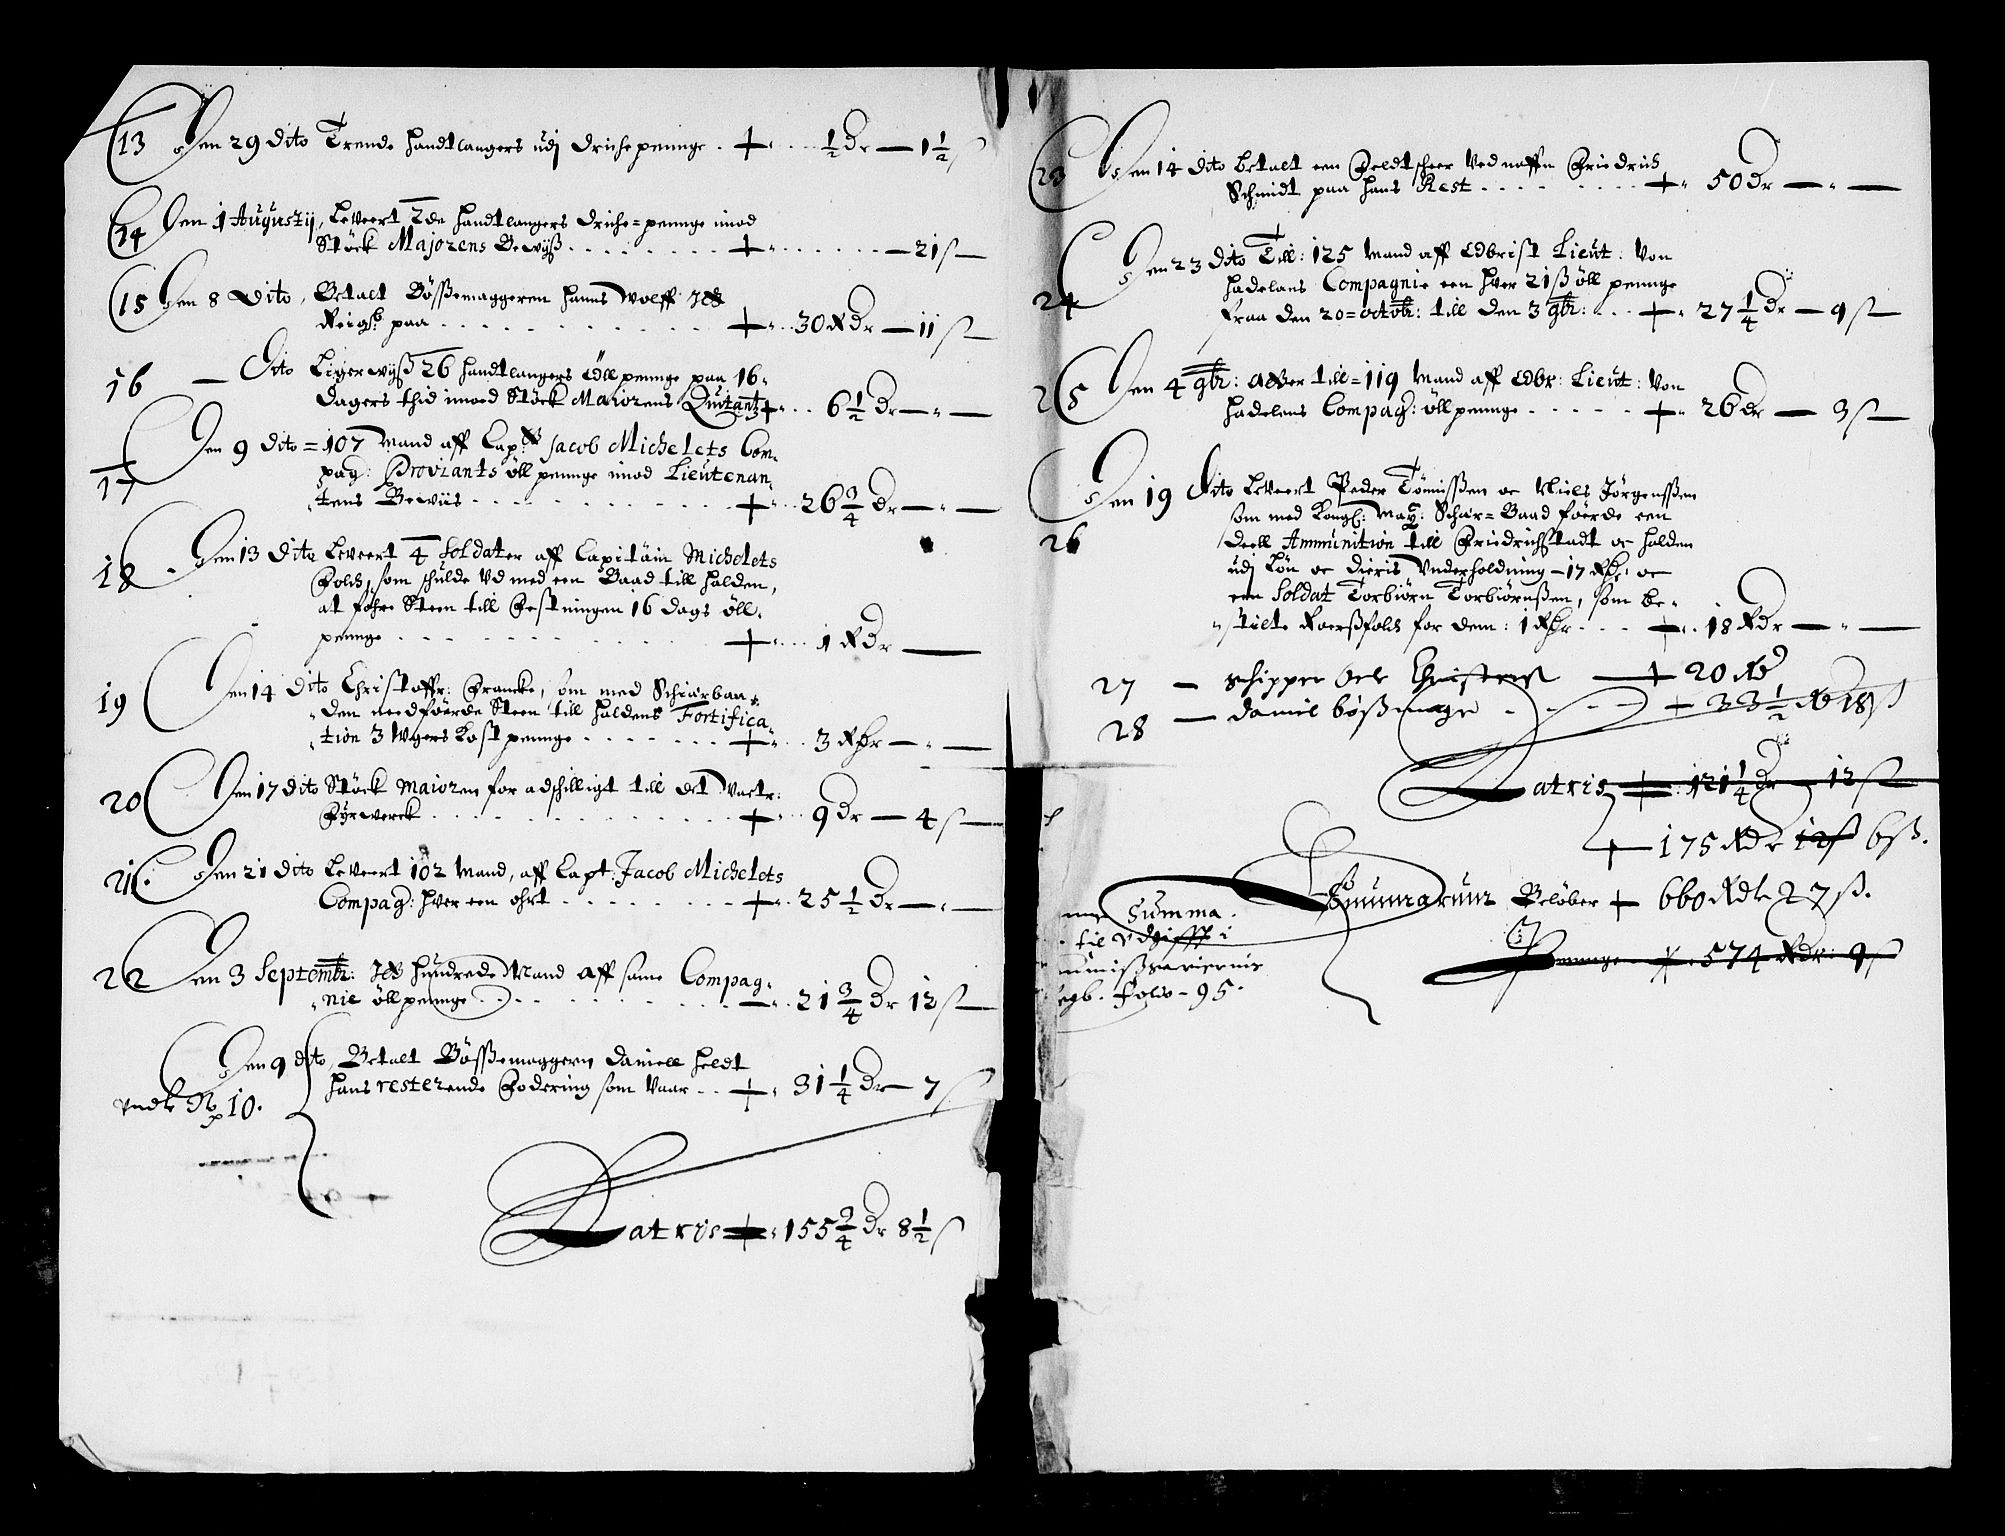 13 Den 29 dito Trende handtlangers udj drichepennge . + ... ½ dr — 1½ ß
14 Den 1 Augustij, Leveert 2de handtlangers driche=pennge imod
Stöck Majorens Bewijß . . . . . . . . + . . . . . . — 21 ß —
15 Den 8 Dito, Betalt Bößsemaggeren hanns Wolff
paa . . . . . . . . . . . . + . . 30 Rdr — 11 ß —
16 — Dito Ligerwijß 26 handtlangers Öllpennge paa 16
dagers thid imod Stöck Maiorens Quitantz + . . 6½ dr — " —
17 Den 9 dito = 107 Mand aff Cap: Jacob Michelets Com-
pag: Proviants öllpennge imod Lieutenan-
tens Bewiis . . . . . . . . . . + . . 26¾ dr — " —
18 Den 13 dito Leveert 4 Soldater aff Capitain Michelets
Folch, som schulde Ud med een Baad till halden,
at föhre Steen till Festningen 16 dags öll-
pennge . . . . . . . . . . . + . . 1 Rdr —
19 Den 14 dito Christoffr: Francke, som med Schiærbaa-
den needföerde Steen till haldens Fortifica-
tion 3 Ugers Kostpennge . . . . . . . + . . 3 Rdr — " —
20 Den 17 dito Stöck Maioren for adschilligt till det
Fyrwerck . . . . . . . . . . . . + . . 9 dr — 4 ß —
21 Den 21 dito Leveert 102 Mand, aff Capt: Jacob Michelets
Compag: hver een ohrt . . . . . . . . + . . 25½ dr — " —
22 Den 3 Septembr: hundrede Mand aff same Compag-
nie öllpennge . . . . . . . . . . — . . 21¾ dr 12 ß —
Den 9 dito, Betalt Bößsemaggern daniell heldt
hans resterende Fodering som Vaar . . + . 31¼ dr — 7 ß
No 10.
Latris + 155 2/4 dr 8½ ß
23 Den 14 dito betalt een Feldtscheer Ved naffn Friedrich
Schmidt paa hans Rest . . . . . . . . + . 50 dr — " —
24 Den 23 dito Till: 125 Mand aff Obrist Lieut: Von
hadelens Compagnie een hver 21 ß öllpennge
fraa den 20 = octobr: till den 3 9br: . . . + . 27¼ dr — 9 ß —
25 Den 4 9br: atter till = 119 Mand aff Obr: Lieut: Von
hadelens Compag: öllpennge . . . . . + . 26 dr — 3 ß —
26 Den 19 Dito Leveert Peder Tömißsen oc Niels Jörgenßsen
som med Kongl: May: Schær=Baad föerde een
deell Ammunition till Friedrichstadt oc halden
udj Lön oc dieris Underholdning — 17 Rdr: oc
een Soldat Torbiörn Torbiörnßen, som be-
stilte Roerßfolch for dem: 1 Rdr . . . + . . 18 Rdr — " —
27 — schipper + 20 Rd
28 — daniel bößmager . . . . . + 33½ Rd 18 ß
Latris + 121¼ dr — 12 ß
+ 175 Rdr 12 ß 6 ß.
Summarum Belöber + 660 Rdl 27 ß.
Pennge 574 Rdr: 9 ß
Summa
til Udgifft i
folio - 95.